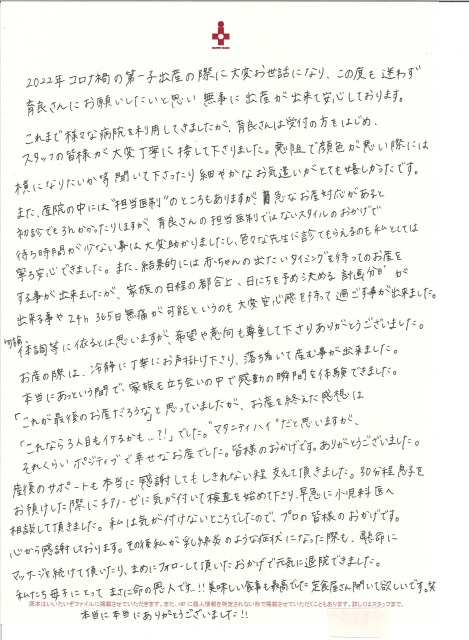 2022年 コロナ禍の第一子出産の際に大変お世話になり、この度も迷わず
育良さんにお願いしたいと思い 無事に出産が出来て安心しております。
これまで様々な病院を利用してきましたが、育良さんは受付の方をはじめ、
スタッフの皆様が大変丁寧に接して下さりました。悪阻で顔色が悪い際には
横になりたいか等 聞いて下さったり 細やかなお気遣いがとても嬉しかったです。
また、産院の中には"担当医制"のところもありますが 緊急なお産対応があると
初診でも3hかかったりしますが、育良さんの担当医制ではないスタイルのおかげで
待ち時間が少ない事は大変助かりましたし、色々な先生に診てもらえるのも私としては
寧ろ安心できました。また、結果的には赤ちゃんの出たいタイミングを待ってのお産を
する事が出来ましたが、家族の日程の都合上、日にちを予め決める"計画分娩"が
出来る事や 24h 365日無痛が可能というのも大変安心感を持って過ごす事が出来ました。
勿論、体調等に依るとは思いますが、希望や意向も尊重して下さりありがとうございました。
お産の際は、冷静に丁寧にお声掛け下さり、落ち着いて産む事が出来ました。
本当にあっという間で、家族も立ち会いの中で感動の瞬間を体験できました。
「これが最後のお産だろうな」と思っていましたが、お産を終えた感想は
「これなら3人目もイケるかも…?!」でした。"マタニティハイ"だと思いますが、
それくらい ポジティブで幸せなお産でした。皆様のおかげです。ありがとうございました。
産後のサポートも本当に感謝してもしきれない程 支えて頂きました。30分程息子を
お預けした際にチアノーゼに気が付いて検査を始めて下さり、早急に小児科医へ
相談して頂きました。私は気が付けないところでしたので、プロの皆様のおかげです。
心から感謝しております。その後私が乳腺炎のような症状になった際も、懸命に
マッサージを続けて頂いたり、まめにフォローして頂いたおかげで元気に退院できました。
私たち母子にとって まさに命の恩人です…!! 美味しい食事も最高でした 定食屋さん開いて欲しいです。笑
原本はいいたいぞファイルに掲載させていただきます。また、HPに個人情報を特定されない形で掲載させていただくこともあります。詳しくはスタッフまで。
本当に本当にありがとうございました!!